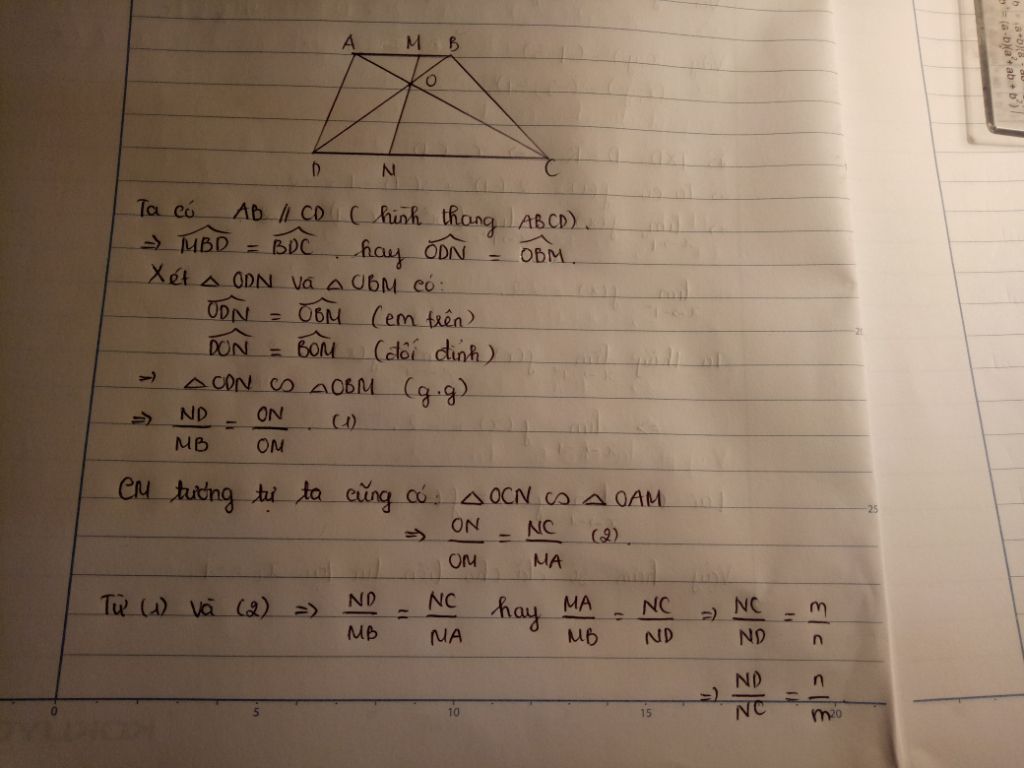 A M B
O
D N C
Ta có AB // CD ( hình thang ABCD).
=> $\widehat{MBD}$ = $\widehat{BDC}$ . hay $\widehat{ODN}$ = $\widehat{OBM}$.
Xét △ ODN và △ OBM có:
$\widehat{ODN}$ = $\widehat{OBM}$ (cm trên)
$\widehat{DON}$ = $\widehat{BOM}$ (đối đỉnh)
=> △ODN ∽ △OBM (g.g)
=> $\frac{ND}{MB}$ = $\frac{ON}{OM}$ . (1)
CM tương tự ta cũng có: △OCN ∽ △OAM
=> $\frac{ON}{OM}$ = $\frac{NC}{MA}$ (2).
Từ (1) và (2) => $\frac{ND}{MB}$ = $\frac{NC}{MA}$ hay $\frac{MA}{MB}$ = $\frac{NC}{ND}$ => $\frac{NC}{ND}$ = $\frac{m}{n}$
=> $\frac{ND}{NC}$ = $\frac{n}{m}$
0 5 10 15 20
25